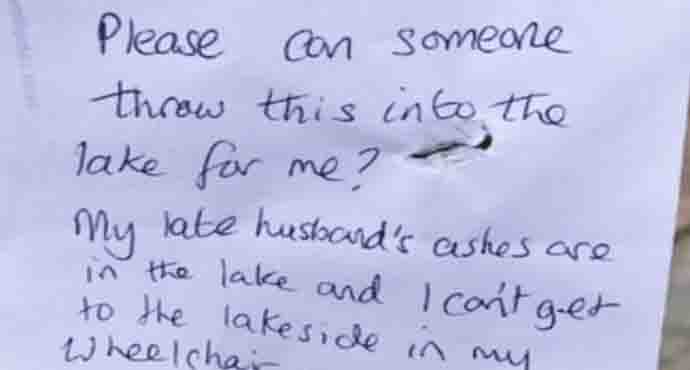 Please can someone
throw this into the
lake for me?
My late husband's ashes are
in the lake and I can't get
to the lakeside in my
Wheelchair